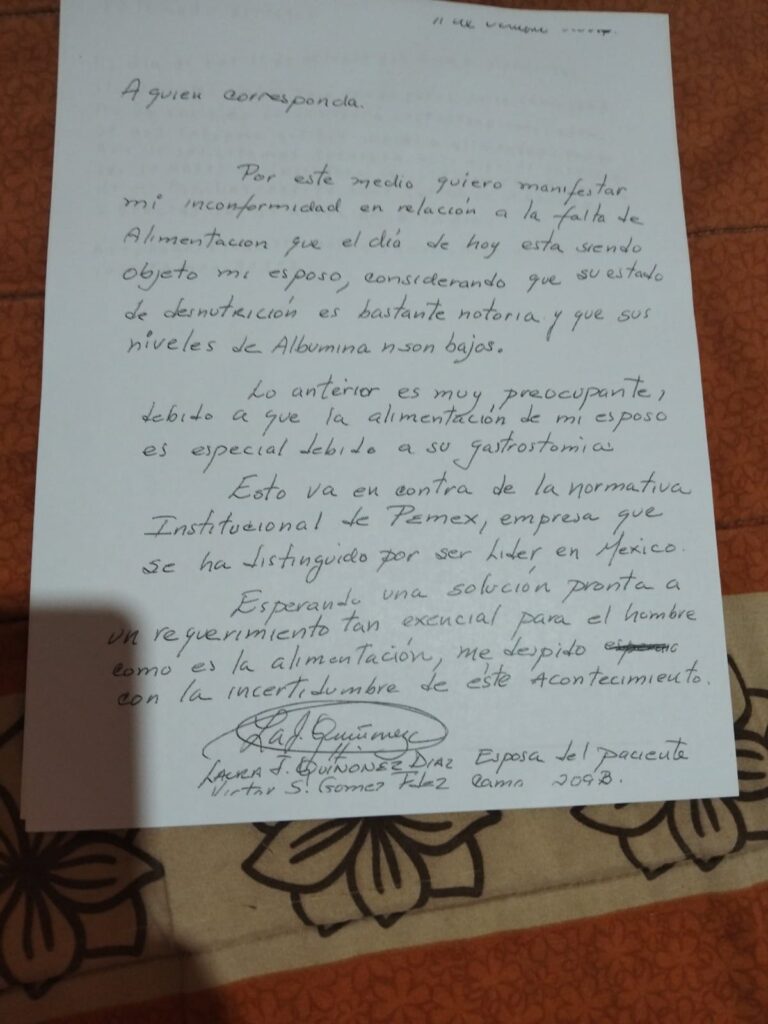 11 de
A quien corresponda.
Por este medio quiero manifestar
mi inconformidad en relación a la falta de
Alimentacion que el día de hoy esta siendo
objeto mi esposo, considerando que su estado
de desnutrición es bastante notoria y que sus
niveles de Albumina n son bajos.
Lo anterior es muy preocupante,
debido a que la alimentación de mi esposo
es especial debido a su gastrostomia
Esto va en contra de la normativa
Institucional de Pemex, empresa que
se ha distinguido por ser Lider en Mexico.
Esperando una solución pronta a
un requerimiento tan exencial para el hombre
como es la alimentación, me despido
con la incertidumbre de este Acontecimiento.
LAURA J. QUIÑONEZ DIAZ Esposa del paciente
Victor S. Gomez Fdez Cama 209B.